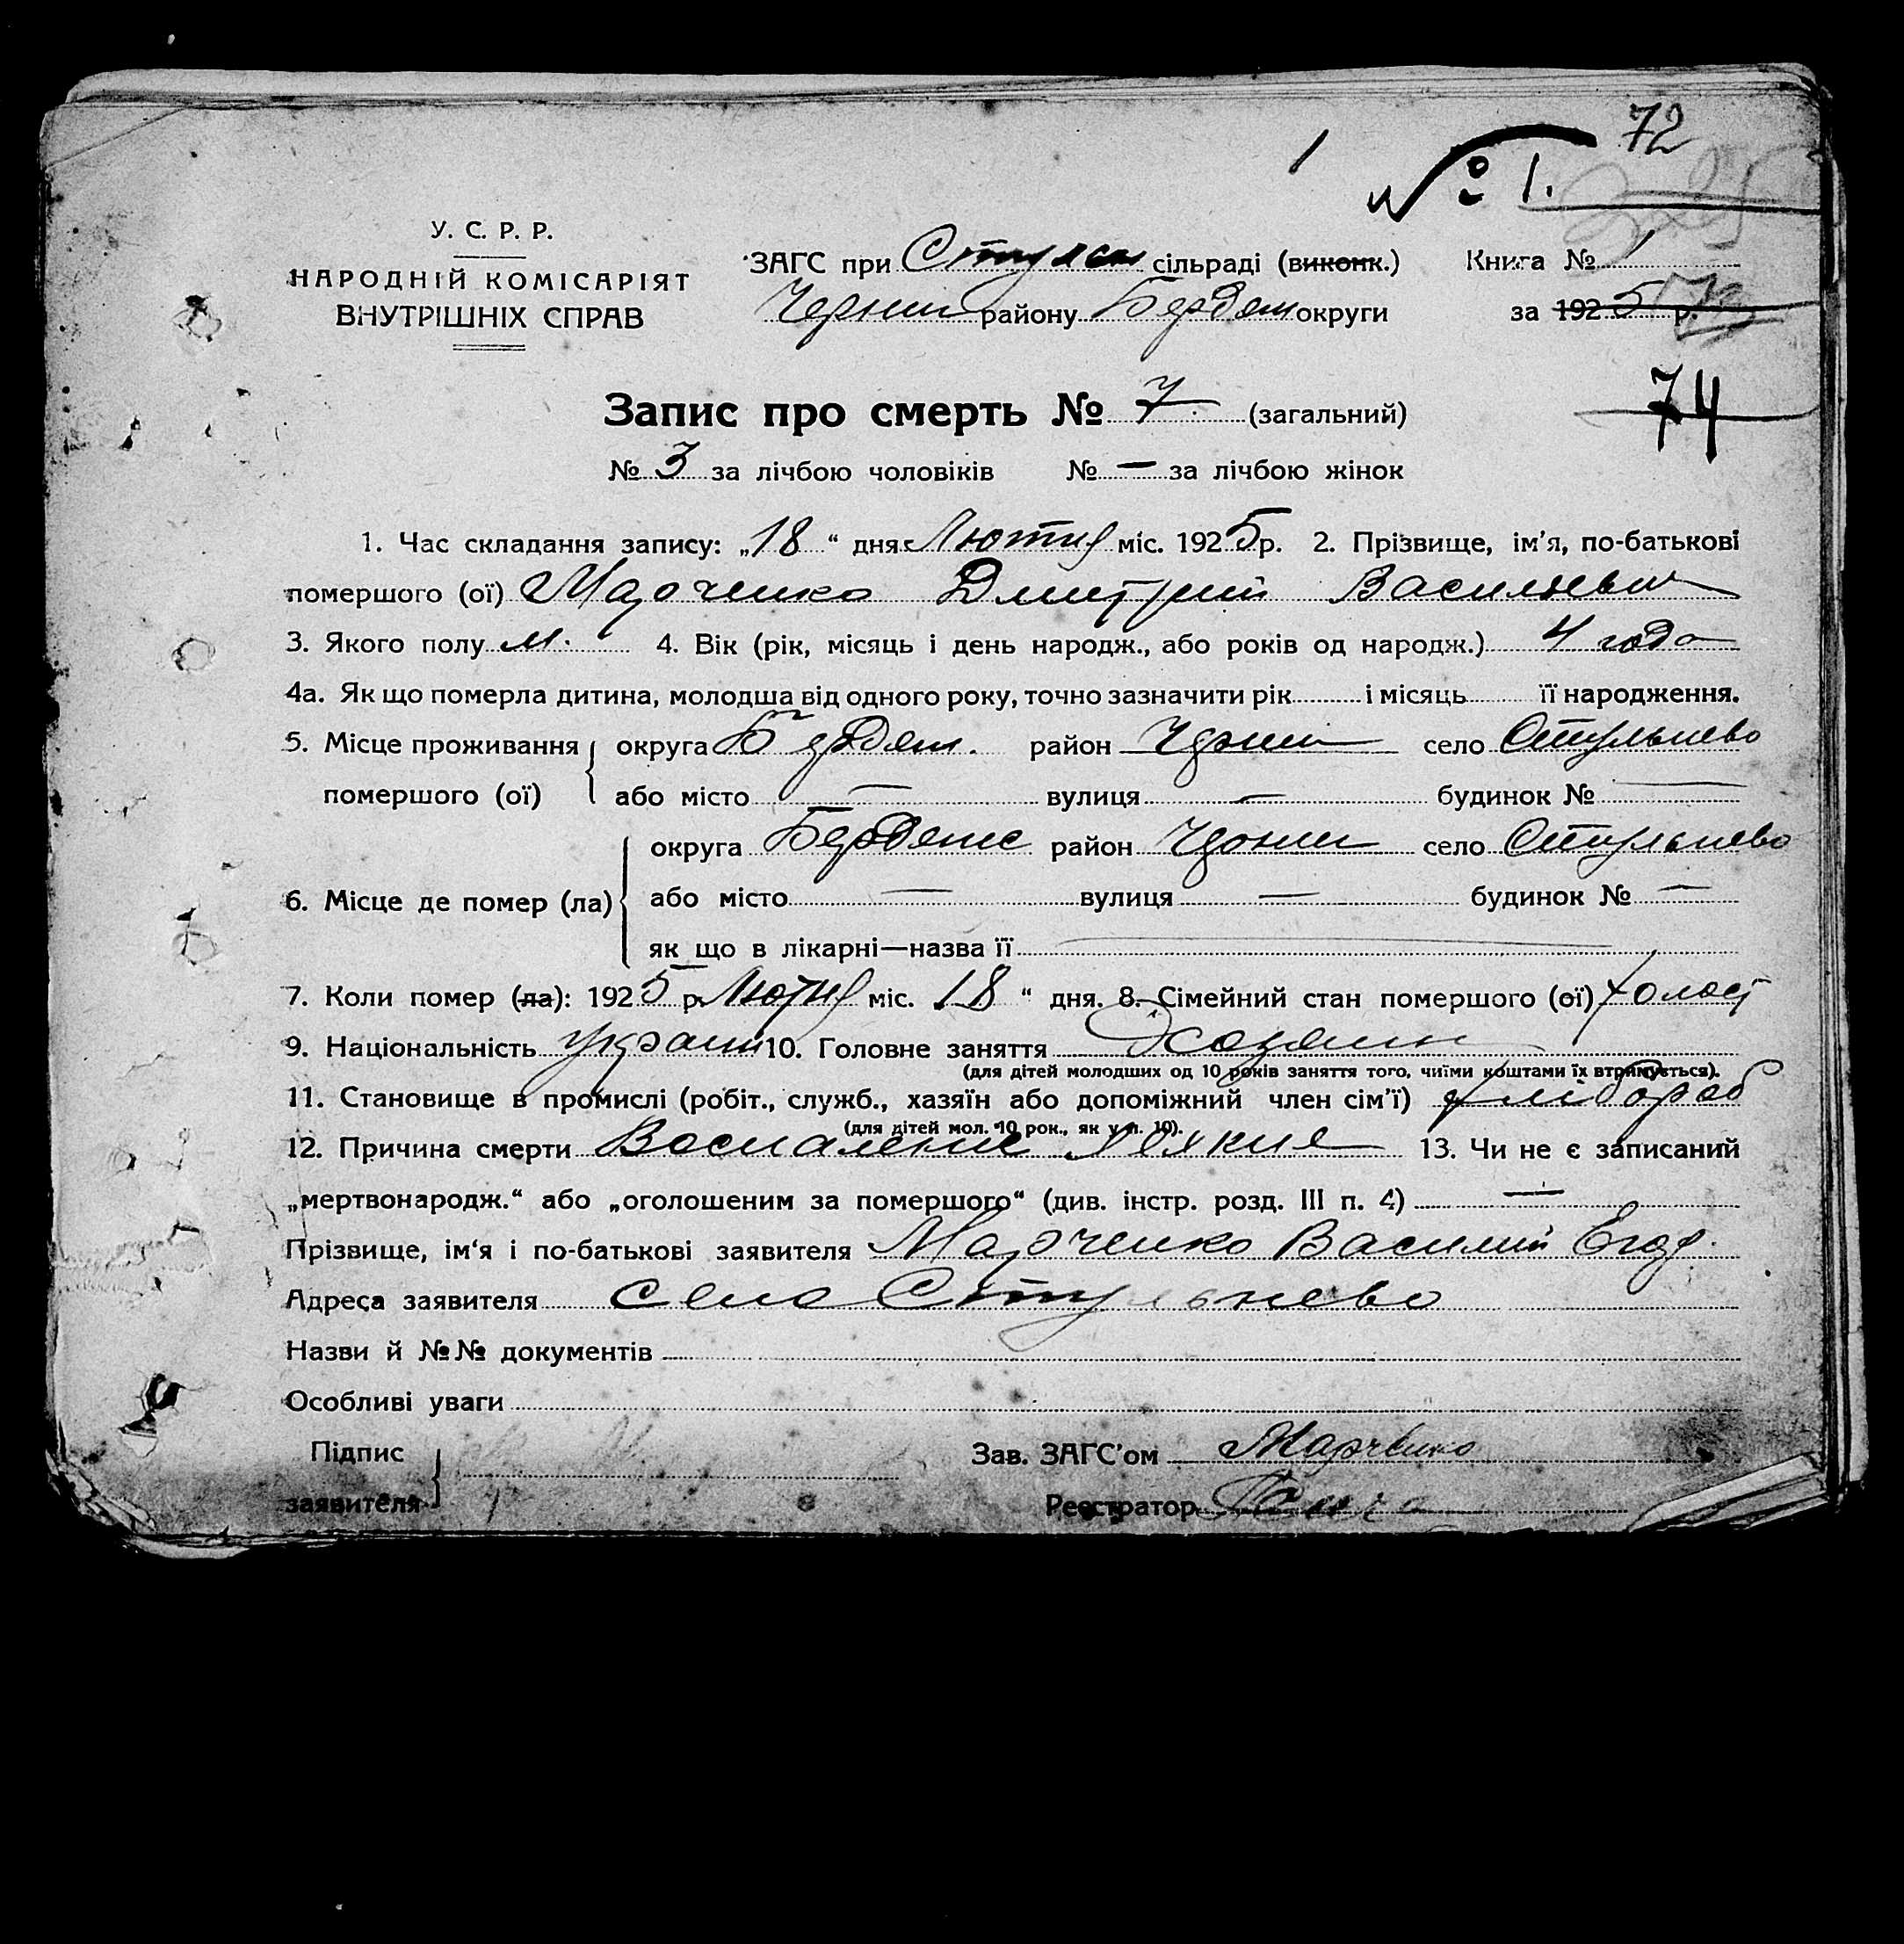 72
1 № 1.
У. С. Р. Р.
НАРОДНІЙ КОМІСАРІЯТ
ВНУТРІШНІХ СПРАВ
ЗАГС при сільраді (виконк.) Книга № 1
Черниг району Бердян округи за 1925 р.
74
Запис про смерть № 7 (загальний)
№ 3 за лічбою чоловіків № — за лічбою жінок
1. Час складання запису: „18“ дня Лютий міс. 1925 р. 2. Прізвище, ім’я, по-батькові
помершого (ої) Марченко Дмитрий Васильевич
3. Якого полу м. 4. Вік (рік, місяць і день народж., або років од народж.) 4 года
4а. Як що померла дитина, молодша від одного року, точно зазначити рік і місяць її народження.
5. Місце проживання округа Бердян. район Черниг село Стульнево
помершого (ої) або місто — вулиця — будинок № —
округа Бердянс район Черниг село Стульнево
6. Місце де помер (ла) або місто — вулиця — будинок № —
як що в лікарні—назва її —
7. Коли помер (ла): 1925 р. Лютий міс. 18 “ дня. 8. Сімейний стан помершого (ої) холост
9. Національність Украин 10. Головне заняття Хозяин
(для дітей молодших од 10 років заняття того, чиїми коштами їх втримується).
11. Становище в промислі (робіт., служб., хазяїн або допоміжний член сім’ї) хлібороб
(для дітей мол. 10 рок., як у п. 10).
12. Причина смерти Воспаление лёхкие 13. Чи не є записаний
„мертвонародж.“ або „оголошеним за помершого“ (див. інстр. розд. III п. 4) —
Прізвище, ім‘я і по-батькові заявителя Марченко Василий Егор.
Адреса заявителя село Стульнево
Назви й №№ документів
Особливі уваги
Підпис Зав. ЗАГС’ом Марченко
заявителя Реєстратор